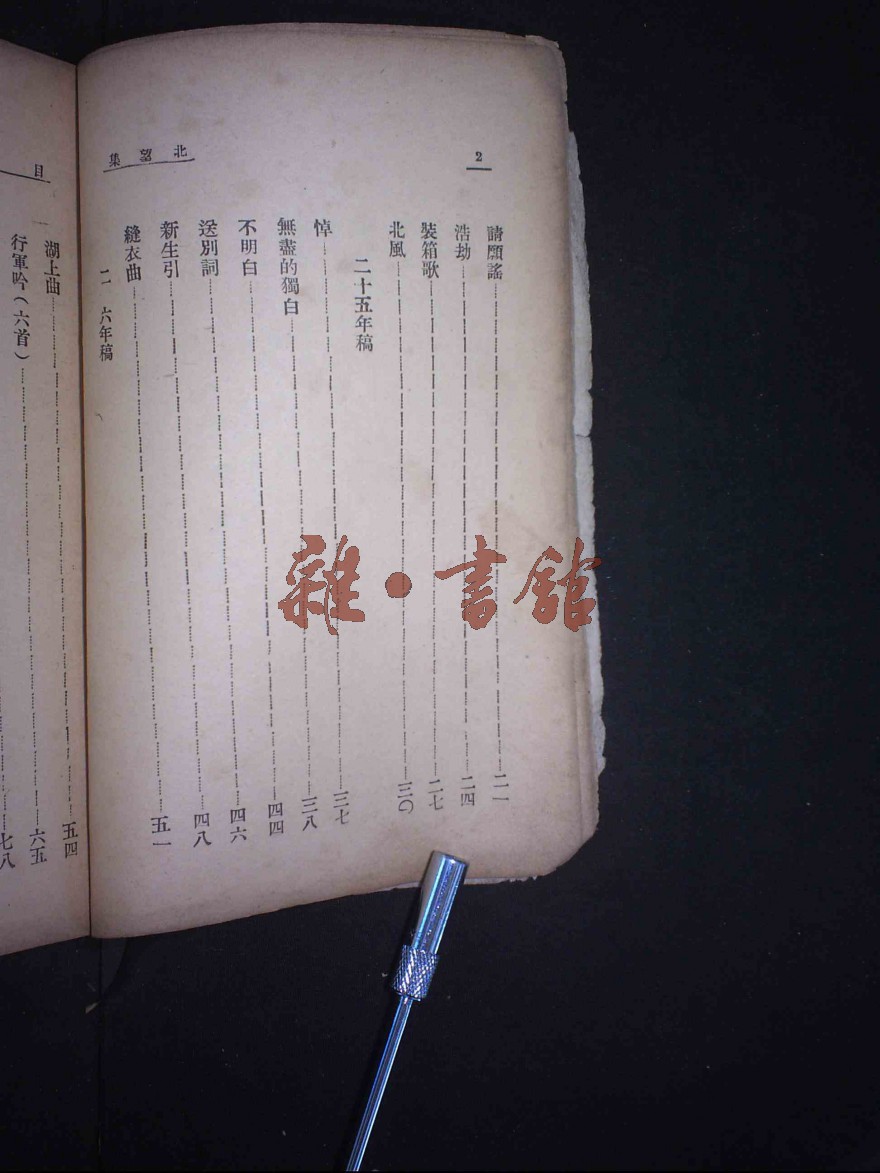 2
北望集
請願謠……二一
浩劫……二四
裝箱歌……二七
北風……三〇
二十五年稿
悼……三七
無盡的獨白……三八
不明白……四四
送別詞……四六
新生引……四八
縫衣曲……五一
二 六年稿
目
湖上曲……五四
行軍吟(六首)……六五
七八
雜·書館